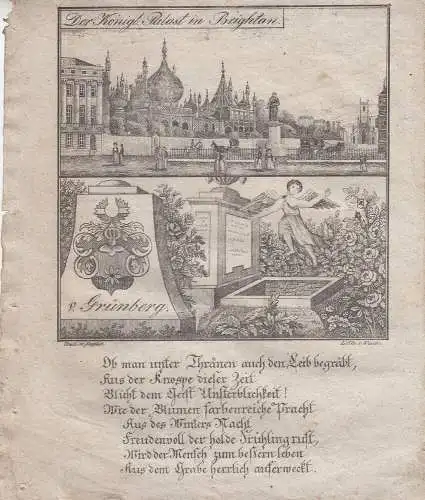 Der Königl. Palast in Brightan.
v. Grünberg.
Ob man unter Thränen auch den Leib begräbt,
Aus der Knospe dieser Zeit
Blüht dem Geist Unsterblichkeit!
Wie der Blumen farbenreiche Pracht
Aus des Winters Nacht
Freudenvoll der holde Frühling ruft,
Wird der Mensch zum bessern leben
Aus dem Grabe herrlich auferweckt.